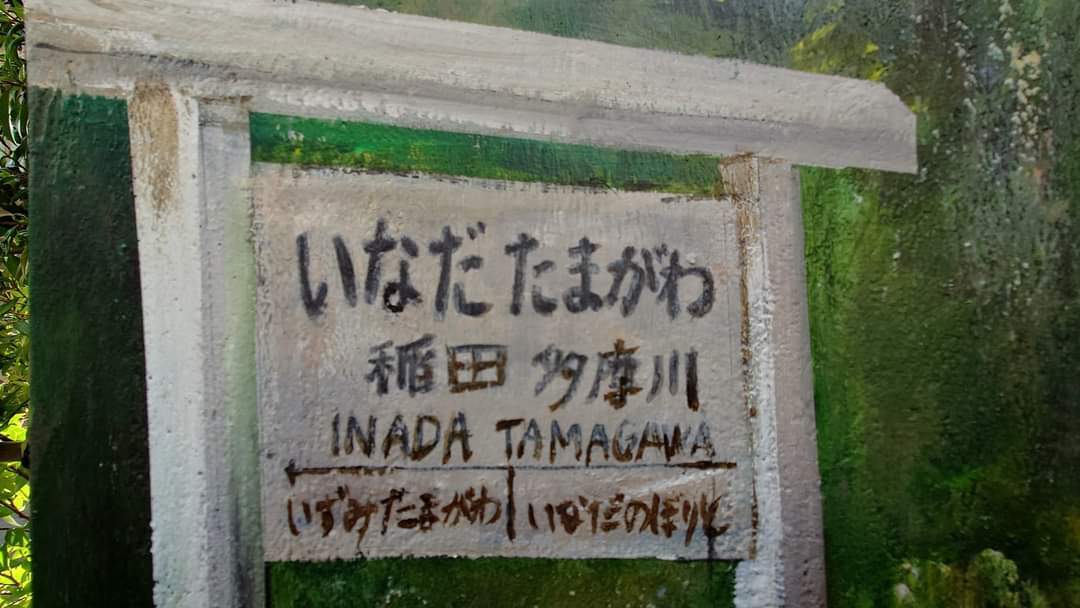 いなだたまがわ
稲田多摩川
INADA TAMAGAWA
いずみたまがわ いなだのぼりと